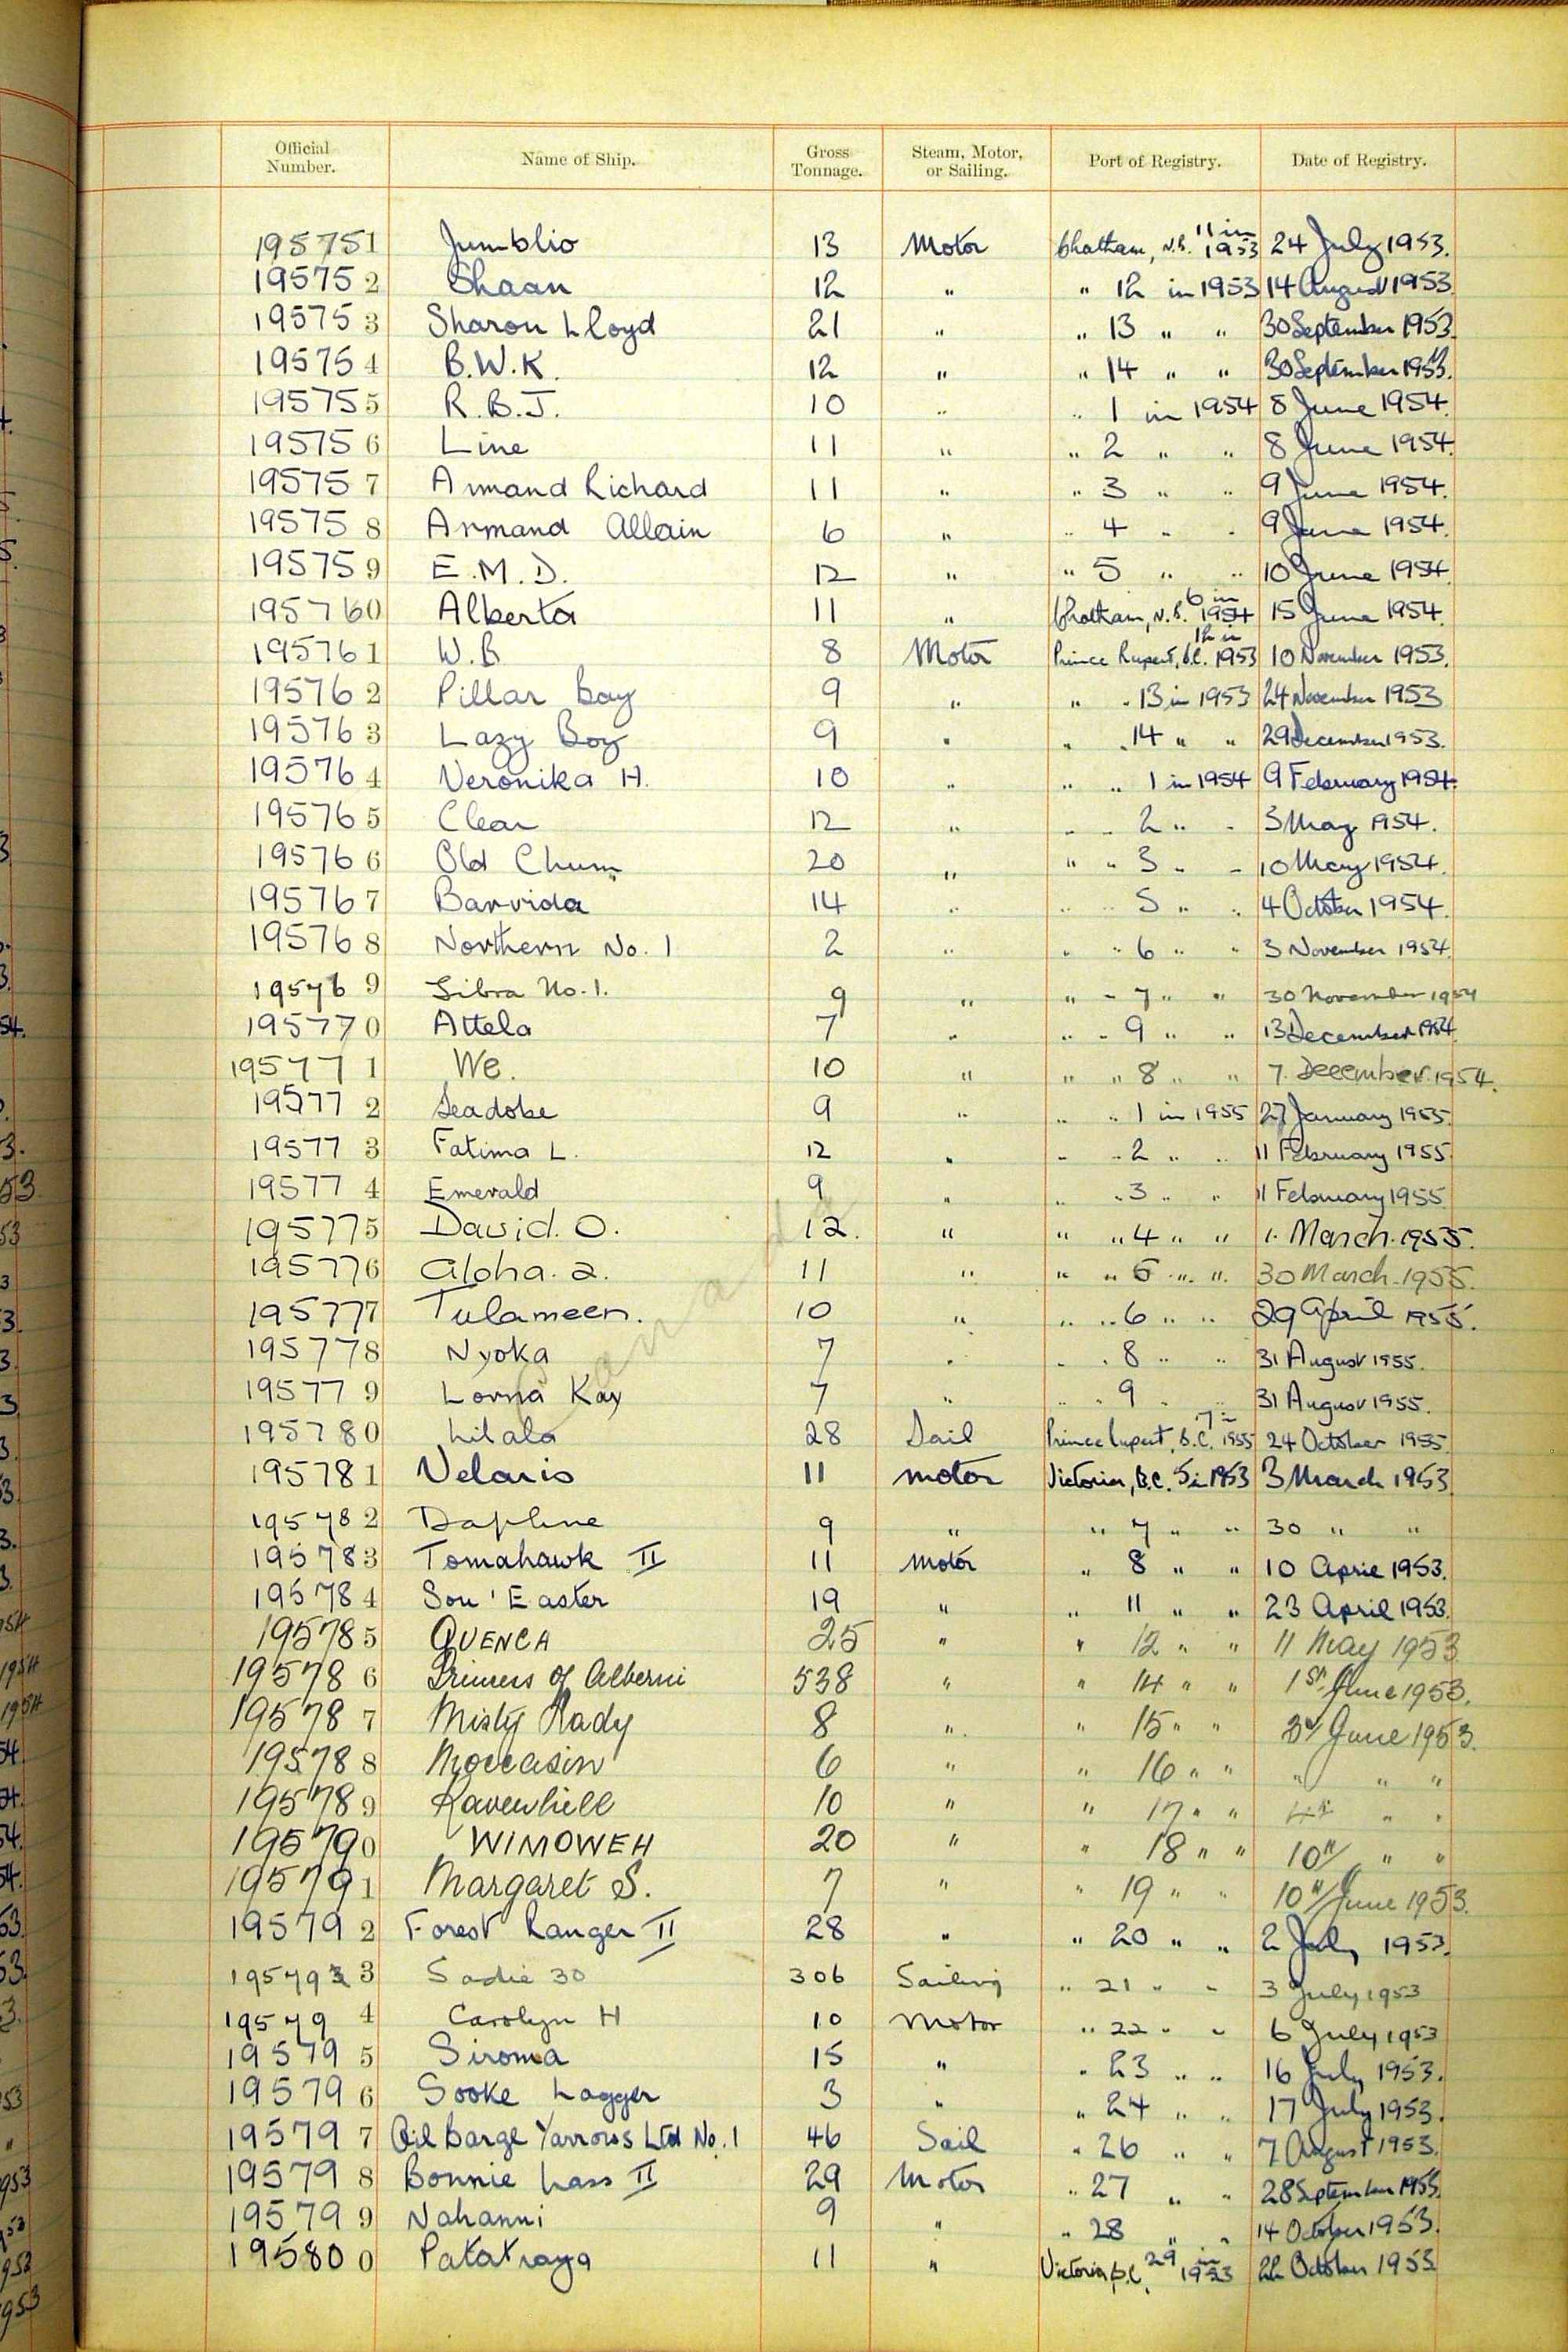 Official Number. Name of Ship. Gross Tonnage. Steam, Motor, or Sailing. Port of Registry. Date of Registry.
195751 Jumblio 13 Motor Chatham, N.B. 11 in 1953 24 July 1953.
195752 Shaan 12 " " 12 in 1953 14 August 1953.
195753 Sharon Lloyd 21 " " 13 " " 30 September 1953.
195754 B.W.K. 12 " " 14 " " 30 September 1953.
195755 R.B.J. 10 " " 1 in 1954 8 June 1954.
195756 Line 11 " " 2 " " 8 June 1954.
195757 Armand Richard 11 " " 3 " " 9 June 1954.
195758 Armand Allain 6 " " 4 " " 9 June 1954.
195759 E.M.D. 12 " " 5 " " 10 June 1954.
195760 Alberta 11 " Chatham, N.B. 6 in 1954 15 June 1954.
195761 W.B 8 Motor Prince Rupert, B.C. 12 in 1953 10 November 1953.
195762 Pillar Bay 9 " " " 13 in 1953 24 November 1953
195763 Lazy Boy 9 " " " 14 " " 29 December 1953.
195764 Veronika H. 10 " " " 1 in 1954 9 February 1954.
195765 Clear 12 " " " 2 " " 3 May 1954.
195766 Old Chum 20 " " " 3 " " 10 May 1954.
195767 Barvida 14 " " " 5 " " 4 October 1954.
195768 Northern No. 1 2 " " " 6 " " 3 November 1954.
195769 Libra No. 1. 9 " " " 7 " " 30 November 1954
195770 Attela 7 " " " 9 " " 13 December 1954.
195771 We. 10 " " " 8 " " 7. December. 1954.
195772 Seadobe 9 " " " 1 in 1955 27 January 1955.
195773 Fatima L. 12 " " " 2 " " 11 February 1955
195774 Emerald 9 " " " 3 " " 11 February 1955
195775 David. O. 12. " " " 4 " " 1. March. 1955.
195776 Aloha. 2. 11 " " " 5 " " 30 March. 1955.
195777 Tulameen. 10 " " " 6 " " 29 April 1955.
195778 Nyoka 7 " " " 8 " " 31 August 1955.
195779 Lorna Kay 7 " " " 9 " " 31 August 1955.
195780 Lilala 28 Sail Prince Rupert, B.C. 7 in 1955 24 October 1955.
195781 Velaris 11 motor Victoria, B.C. 5 in 1953 3 March 1953
195782 Daphne 9 " " 7 " " 30 " "
195783 Tomahawk II 11 Motor " 8 " " 10 April 1953.
195784 Sou' Easter 19 " " 11 " " 23 April 1953.
195785 QUENCA 25 " " 12 " " 11 May 1953
195786 Princess of Alberni 538 " " 14 " " 1st June 1953.
195787 Misty Lady 8 " " 15 " " 3rd June 1953.
195788 Moccasin 6 " " 16 " " " " "
195789 Ravenhill 10 " " 17 " " 4th " "
195790 WIMOWEH 20 " " 18 " " 10th " "
195791 Margaret S. 7 " " 19 " " 10th June 1953.
195792 Forest Ranger II 28 " " 20 " " 2 July 1953.
195793 Sadie 30 306 Sailing " 21 " " 3 July 1953
195794 Carolyn H 10 Motor " 22 " " 6 July 1953
195795 Siroma 15 " " 23 " " 16 July 1953.
195796 Sooke Logger 3 " " 24 " " 17 July 1953.
195797 Oil Barge Yarrows Ltd No. 1 46 Sail " 26 " " 7 August 1953.
195798 Bonnie Lass II 29 Motor " 27 " " 28 September 1953.
195799 Nahanni 9 " " 28 " " 14 October 1953.
195800 Patatraya 11 " Victoria B.C. 29 in 1953 22 October 1953
Canada